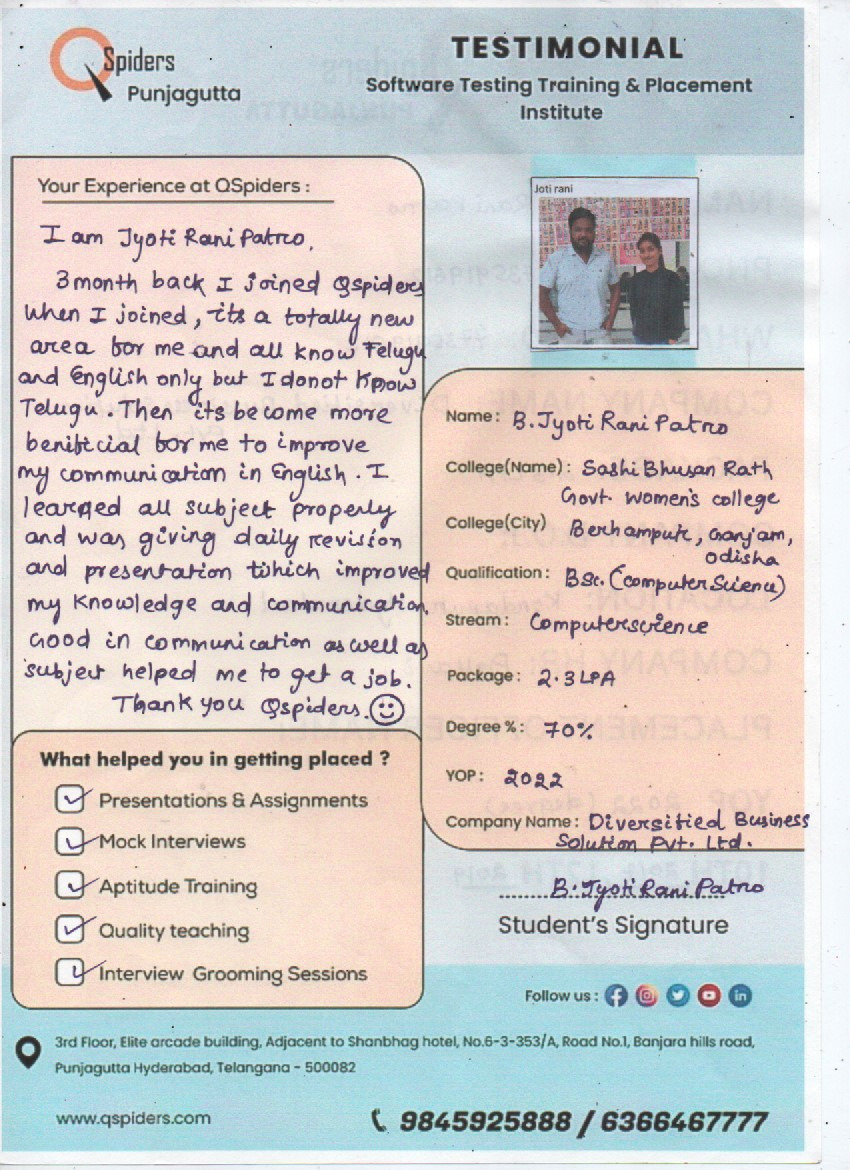 QSpiders
Punjagutta
TESTIMONIAL
Software Testing Training & Placement
Institute
Your Experience at QSpiders :
I am Jyoti Rani Patro,
3 month back I joined Qspiders
when I joined, its a totally new
area for me and all know Telugu
and English only but I donot know
Telugu. Then its become more
benificial for me to improve
my communication in English. I
learned all subject properly
and was giving daily revision
and presentation which improved
my knowledge and communication.
Good in communication as well as
subject helped me to get a job.
Thank you Qspiders.
What helped you in getting placed ?
Presentations & Assignments
Mock Interviews
Aptitude Training
Quality teaching
Interview Grooming Sessions
Joti rani
Name: B. Jyoti Rani Patro
College(Name) : Sashi Bhusan Rath
Govt. Women's college
College(City) Berhampur, Ganjam,
Odisha
Qualification: BSc. (Computer Science)
Stream : Computerscience
Package: 2.3 LPA
Degree %: 70%
YOP: 2022
Company Name : Diversified Business
Solution Pvt. Ltd.
B. Jyoti Rani Patro
Student's Signature
Follow us :
3rd Floor, Elite arcade building, Adjacent to Shanbhag hotel, No.6-3-353/A, Road No.1, Banjara hills road,
Punjagutta Hyderabad, Telangana - 500082
www.qspiders.com
9845925888 / 6366467777